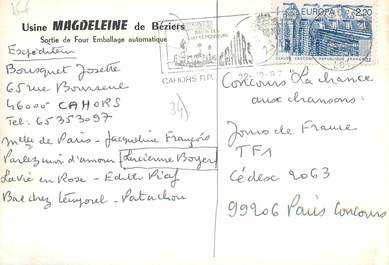 Usine MAGDELEINE de Béziers
Sortie de Four Emballage automatique
Expéditeur
Bousquet Josette
65 rue Bourseul
46000 CAHORS
Tel: 65353097
Melle de Paris - Jacqueline François
Parlez moi d'amour Lucienne Boyer
La Vie en Rose - Edith Piaf
Bal chez Temporel - Patachou
34
CAHORS R.P.
EUROPA
2,20
Concours "La chance
aux chansons"
Jours de France
TF1
Cédex 2063
99206 Paris Concours